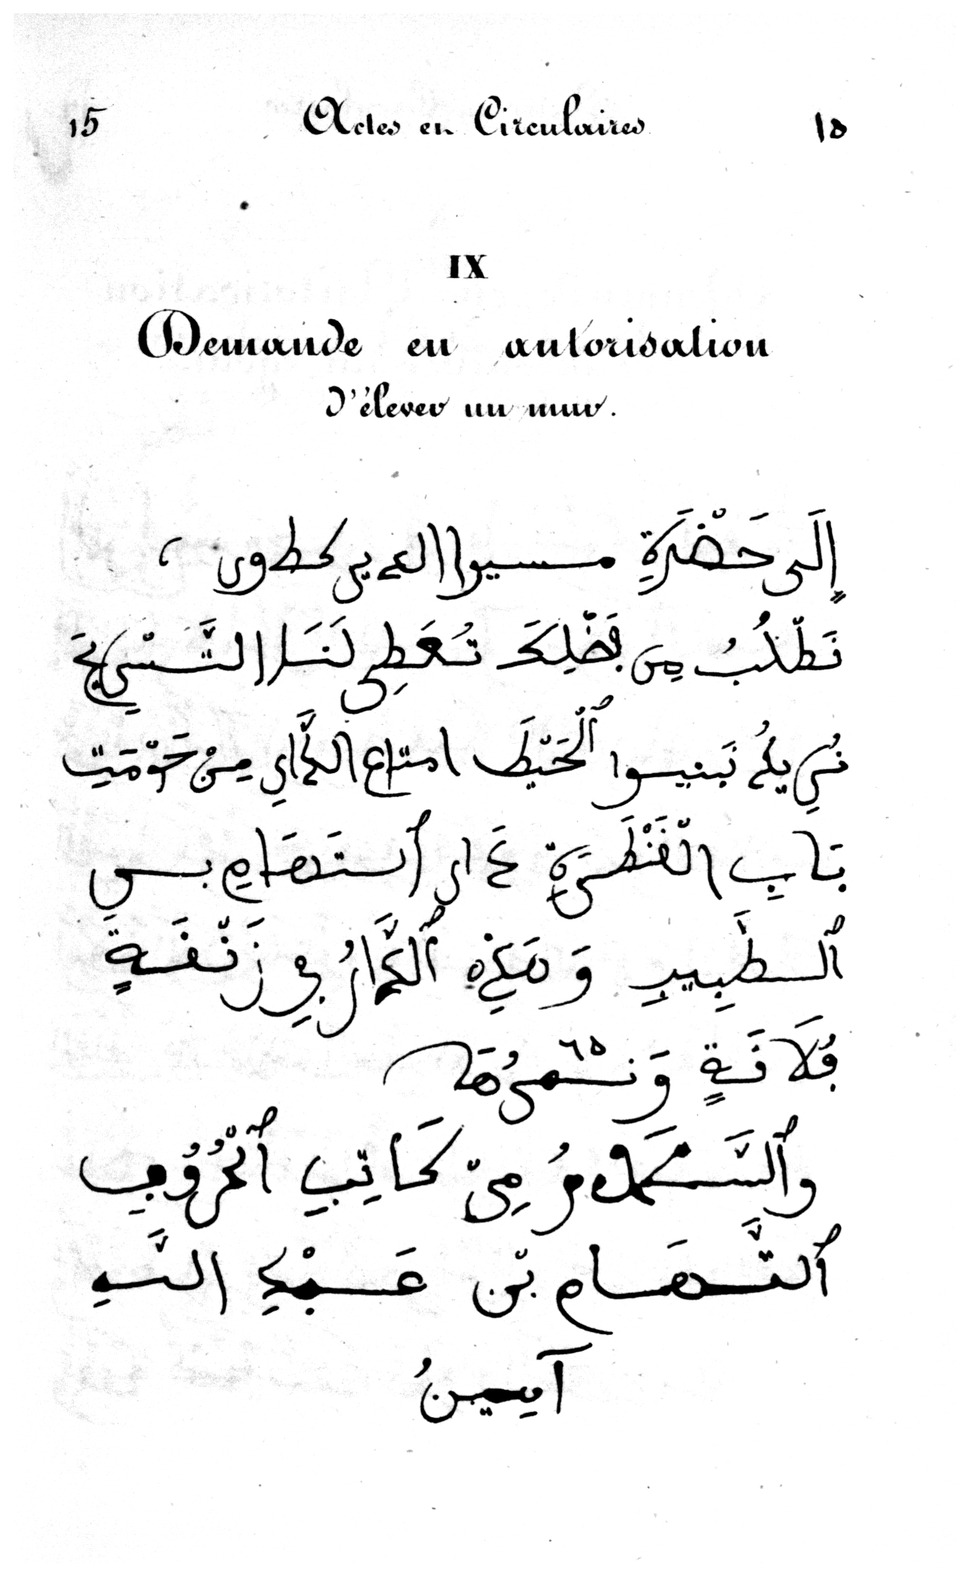 15 Actes en Circulaires ١٥
IX
Demande en autorisation
d'élever un mur.
إِلَى حَضْرَةِ مسيوا
نَطْلُبُ مِن بَضْلِكَ تُعَطِي لَنَا التَّسْرِيحَ
نَبنيوا ٱلْحَيْطَ امتاع الدَّارِ مِنْ حَوْمَتِ
بَابِ الْفَنْطَرَةِ دار
ٱلطَّبِيبِ وَهَذِهِ ٱلدَّارُ فِي زَنْفَةٍ
بُلَانَةٍ وَنمرُهَا ٦٥
وٱلسَّلَامُ مِنْ كَاتِبِ ٱلْحُرُوفِ
ٱلتهَام بْن عَبْدِ اللَّهِ
آمِينُ